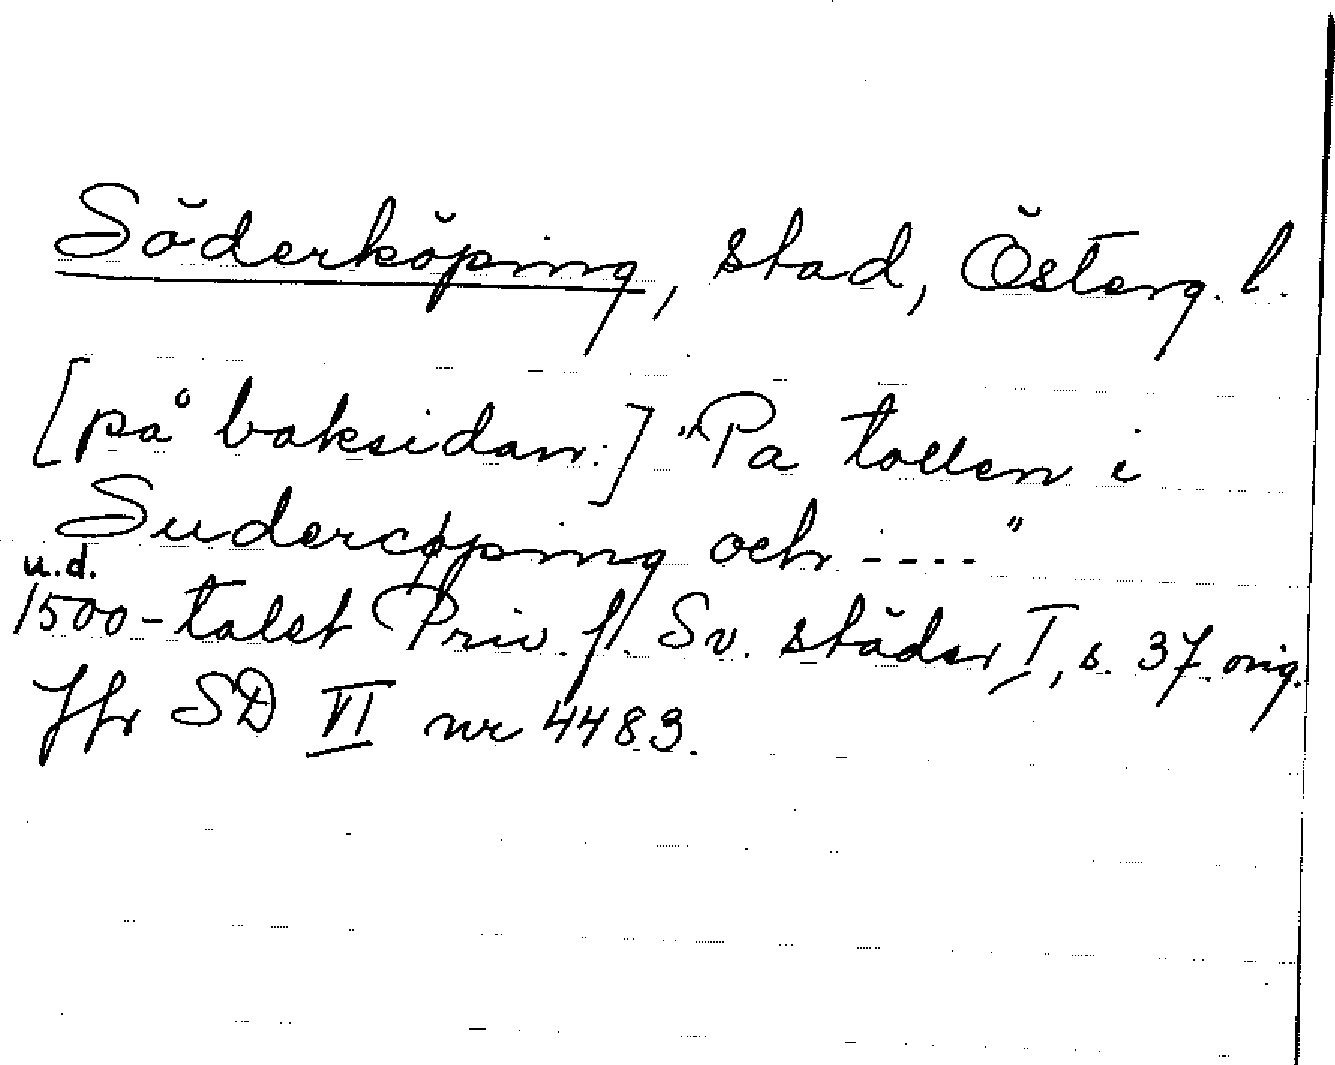 Söderköping, stad, Österg. l.
[på baksidan:] "Pa tollen i
Sudercøping och ----"
u.d.
1500-talet Priv. f. Sv. städer I, s. 37. orig.
Jfr SD VI nr 4483.